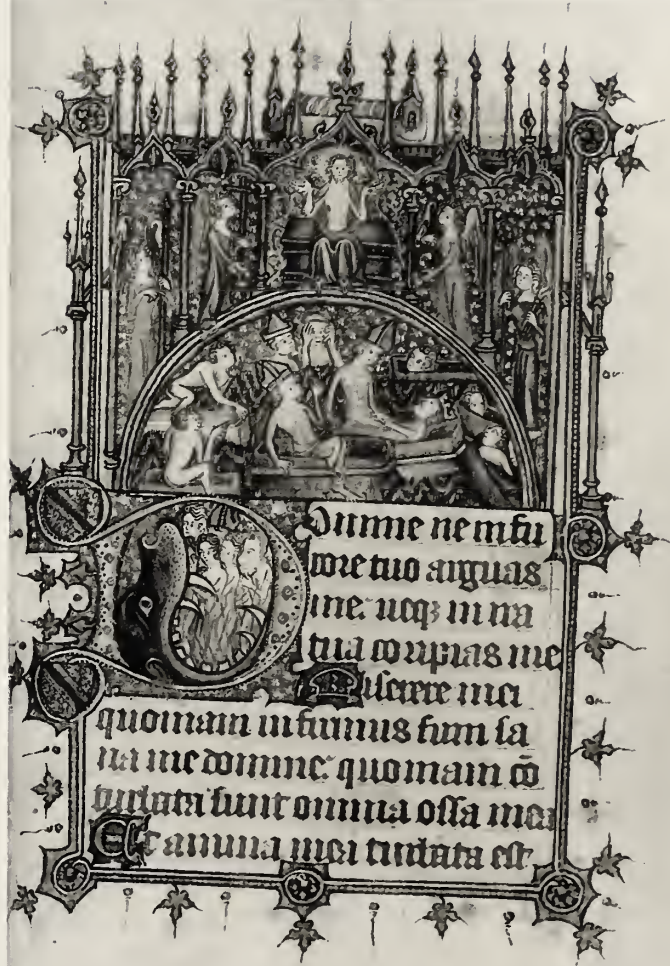 Domine ne in fu
rore tuo arguas
me: neqꝫ in ira
tua corripias me
Miserere mei
quoniam infirmus sum sa
na me domine: quoniam cō
turbata sunt omnia ossa mea
Et anima mea turbata est